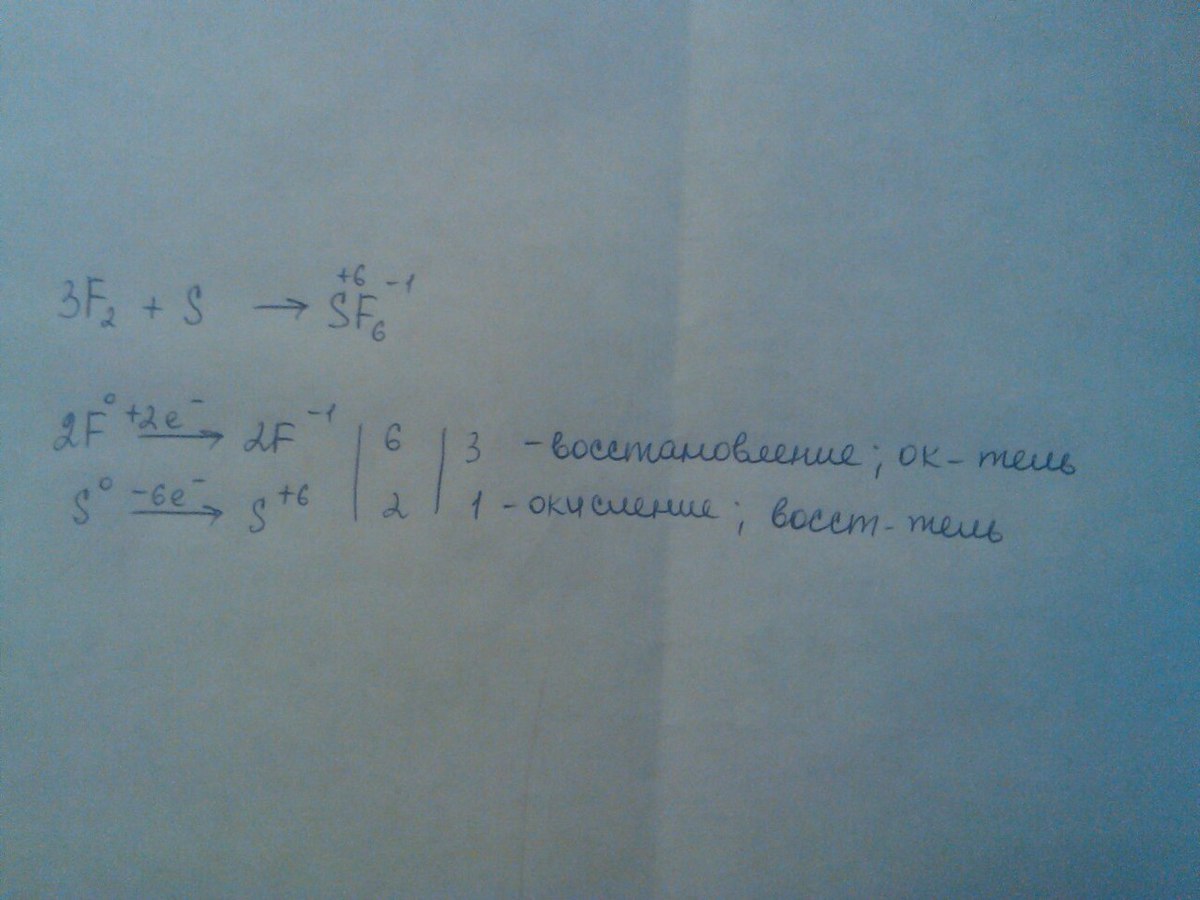 3F₂ + S → S⁺⁶F₆⁻¹
2F⁰ +2e⁻→ 2F⁻¹ | 6 | 3 - восстановление; ок-тель
S⁰ -6e⁻→ S⁺⁶ | 2 | 1 - окисление; восст-тель